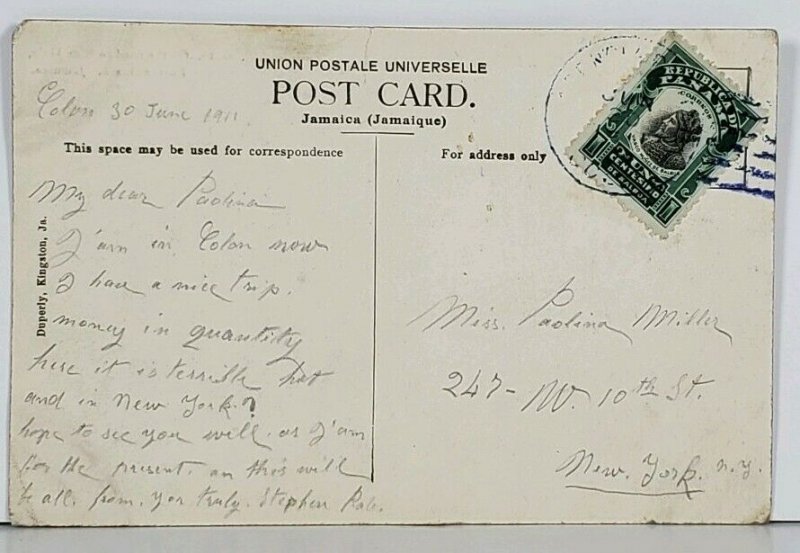 UNION POSTALE UNIVERSELLE
POST CARD.
Jamaica (Jamaique)
Colon 30 June 1911
This space may be used for correspondence
For address only
My dear Paolina
I'am in Colon now
I have a nice trip.
money in quantity
here it is terrible hot
and in New York?
hope to see you well. as I'am
for the present. an this will
be all. from. yor truly. Stephen
Duperly, Kingston, Ja.
Miss. Paolina Miller
247- W. 10th St.
New. York. N.Y.
REPUBLICA DE
PANAMA
CORREOS
UN
CENTESIMO
DE BALBOA